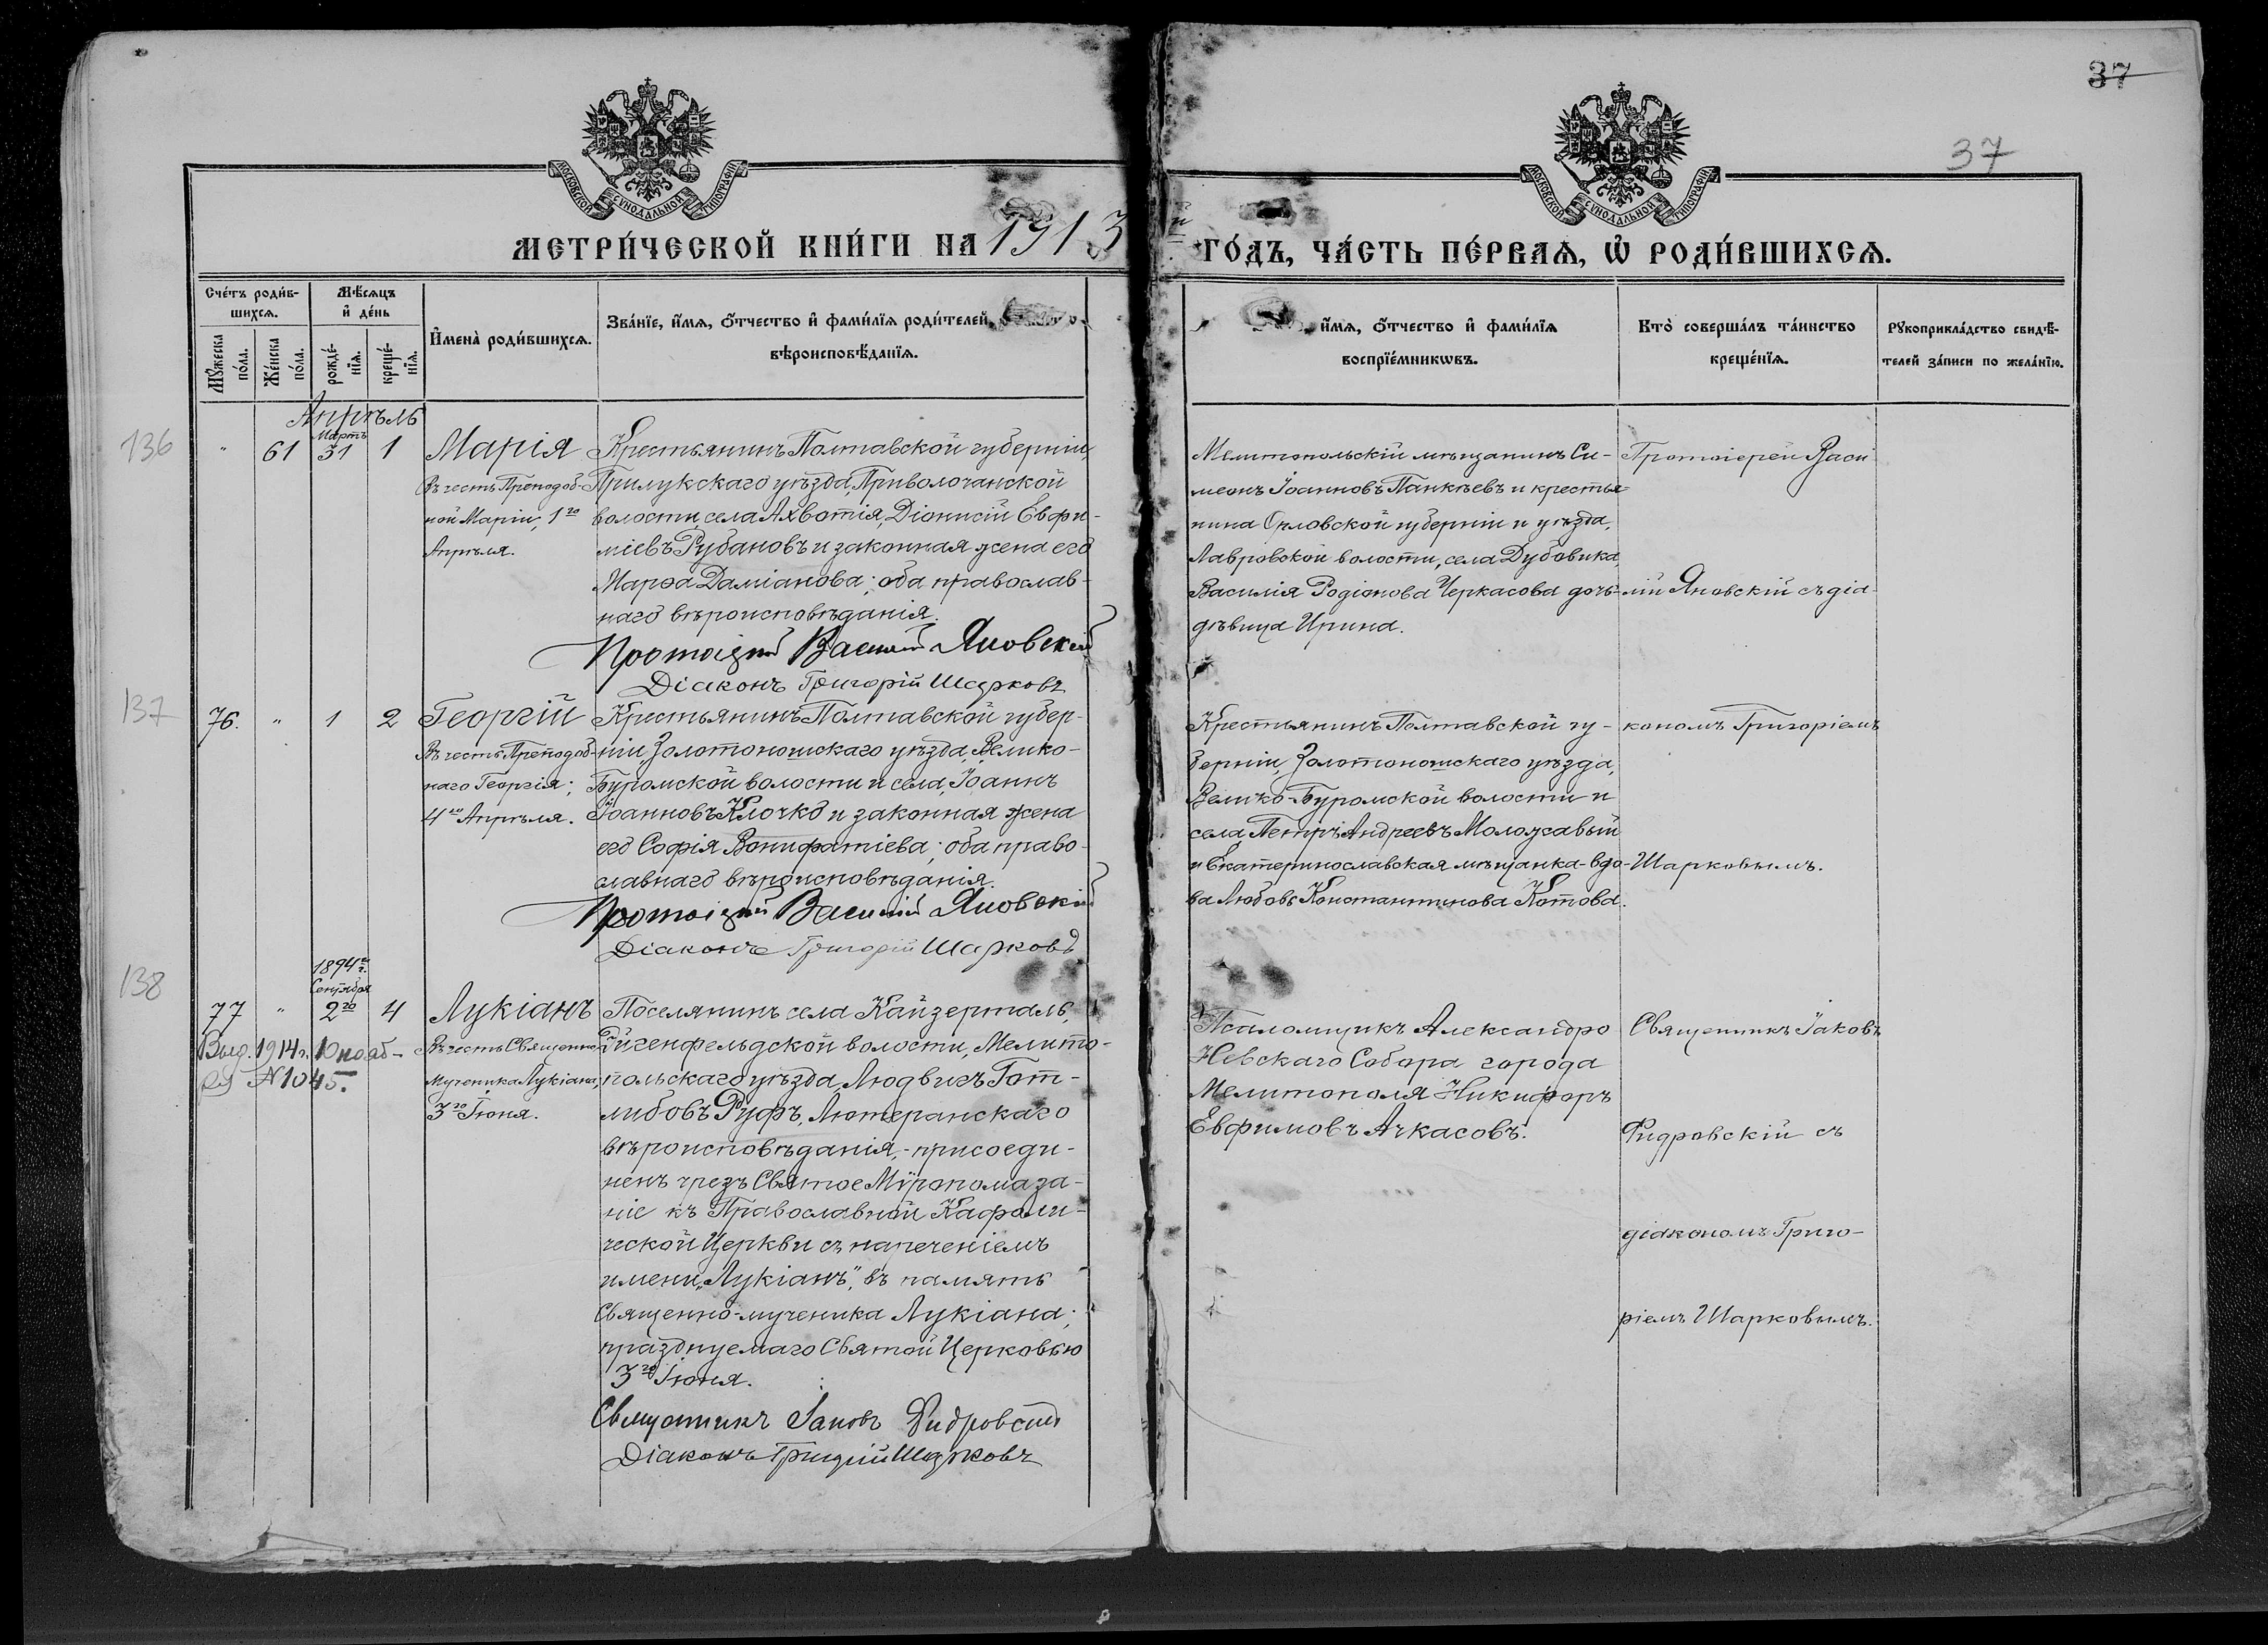 37
37
МОСКОВСКОЙ СѴНОДАЛЬНОЙ ТИПОГРАФІИ
МОСКОВСКОЙ СѴНОДАЛЬНОЙ ТИПОГРАФІИ
МЕТРИ́ЧЕСКОЙ КНИ́ГИ НА 1913
й ГО́ДЪ, ЧА́СТЬ ПЕ́РВАѦ, Ѿ РОДИ́ВШИХСѦ.
Сче́тъ роди́в-
шихсѧ.
Мꙋ́жеска
по́ла.
Же́нска
по́ла.
Мѣ́сѧцъ
и҆ де́нь
рожде́-
нїѧ.
креще́-
нїѧ.
И҆мена̀ роди́вшихсѧ.
Зва́нїе, и҆́мѧ, ѻ҆́тчество и҆ фами́лїѧ роди́телей,
вѣроисповѣ́данїѧ.
и҆́мѧ, ѻ҆́тчество и҆ фами́лїѧ
воспрїе́мникѡвъ.
Кто̀ соверша́лъ та́инство
креще́нїѧ.
Рꙋкоприкла́дство свидѣ́-
телей за́писи по жела́нїю.
Апрѣль
136
"
61
Мартъ
31
1
Марія
Въ честь Преподоб-
ной Маріи, 1го
Апрѣля.
Крестьянинъ Полтавской губерніи,
Прилукскаго уѣзда, Приволочанской
волости, села Ахвотія, Діонисій Евфи-
міевъ Рубановъ и законная жена его
Марѳа Даміанова; оба православ-
наго вѣроисповѣданія.
Протоіерей Василій Яновскій
Діаконъ Григорій Шарковъ
Мелитопольскій мѣщанинъ Си-
меонъ Іоанновъ Панкѣевъ и крестья-
нина Орловской губерніи и уѣзда,
Лавровской волости, села Дубовика,
Василія Родіонова Черкасова дочь-
дѣвица Ирина.
Протоіерей Васи
лій Яновскій съ діа-
кономъ Григоріемъ
Шарковымъ.
137
76.
"
1
2
Георгій
Въ честь Преподоб-
наго Георгія;
4го Апрѣля.
Крестьянинъ Полтавской губер-
ніи, Золотоношскаго уѣзда, Велико-
Буромской волости и села, Іоаннъ
Іоанновъ Клочко и законная жена
его Софія Вонифатіева; оба право-
славнаго вѣроисповѣданія.
Протоіерей Василій Яновскій
Діаконъ Григорій Шарковъ
Крестьянинъ Полтавской гу-
берніи, Золотоношскаго уѣзда,
Велико-Буромской волости и
села, Петръ Андреевъ Моложавый
и Екатеринославская мѣщанка-вдо-
ва Любовь Константинова Котова.
138
77
"
1894 г.
Сентября
2го
4
Выд. 1914 г. 10 нояб-
ря №1045.
Лукіанъ
Въ честь Священно-
мученика Лукіана,
3го Іюня.
Поселянинъ села Кайзерталь,
Эйгенфельдской волости, Мелито-
польскаго уѣзда, Людвигъ Гот-
либовъ Руфъ, Лютеранскаго
вѣроисповѣданія, - присоеди-
ненъ чрезъ Святое Мѵропомаза-
ніе къ Православной Каѳоли-
ческой Церкви съ нареченіемъ
имени „Лукіанъ", въ память
Священно-мученика Лукіана,
празднуемаго Святой Церковью
3го Іюня.
Священникъ Іаковъ Фидровскій
Діаконъ Григорій Шарковъ
Псаломщикъ Александро
Невскаго Собора города
Мелитополя Никифоръ
Евфимовъ Ачкасовъ.
Священникъ Іаковъ
Фидровскій съ
діакономъ Григо-
ріемъ Шарковымъ.